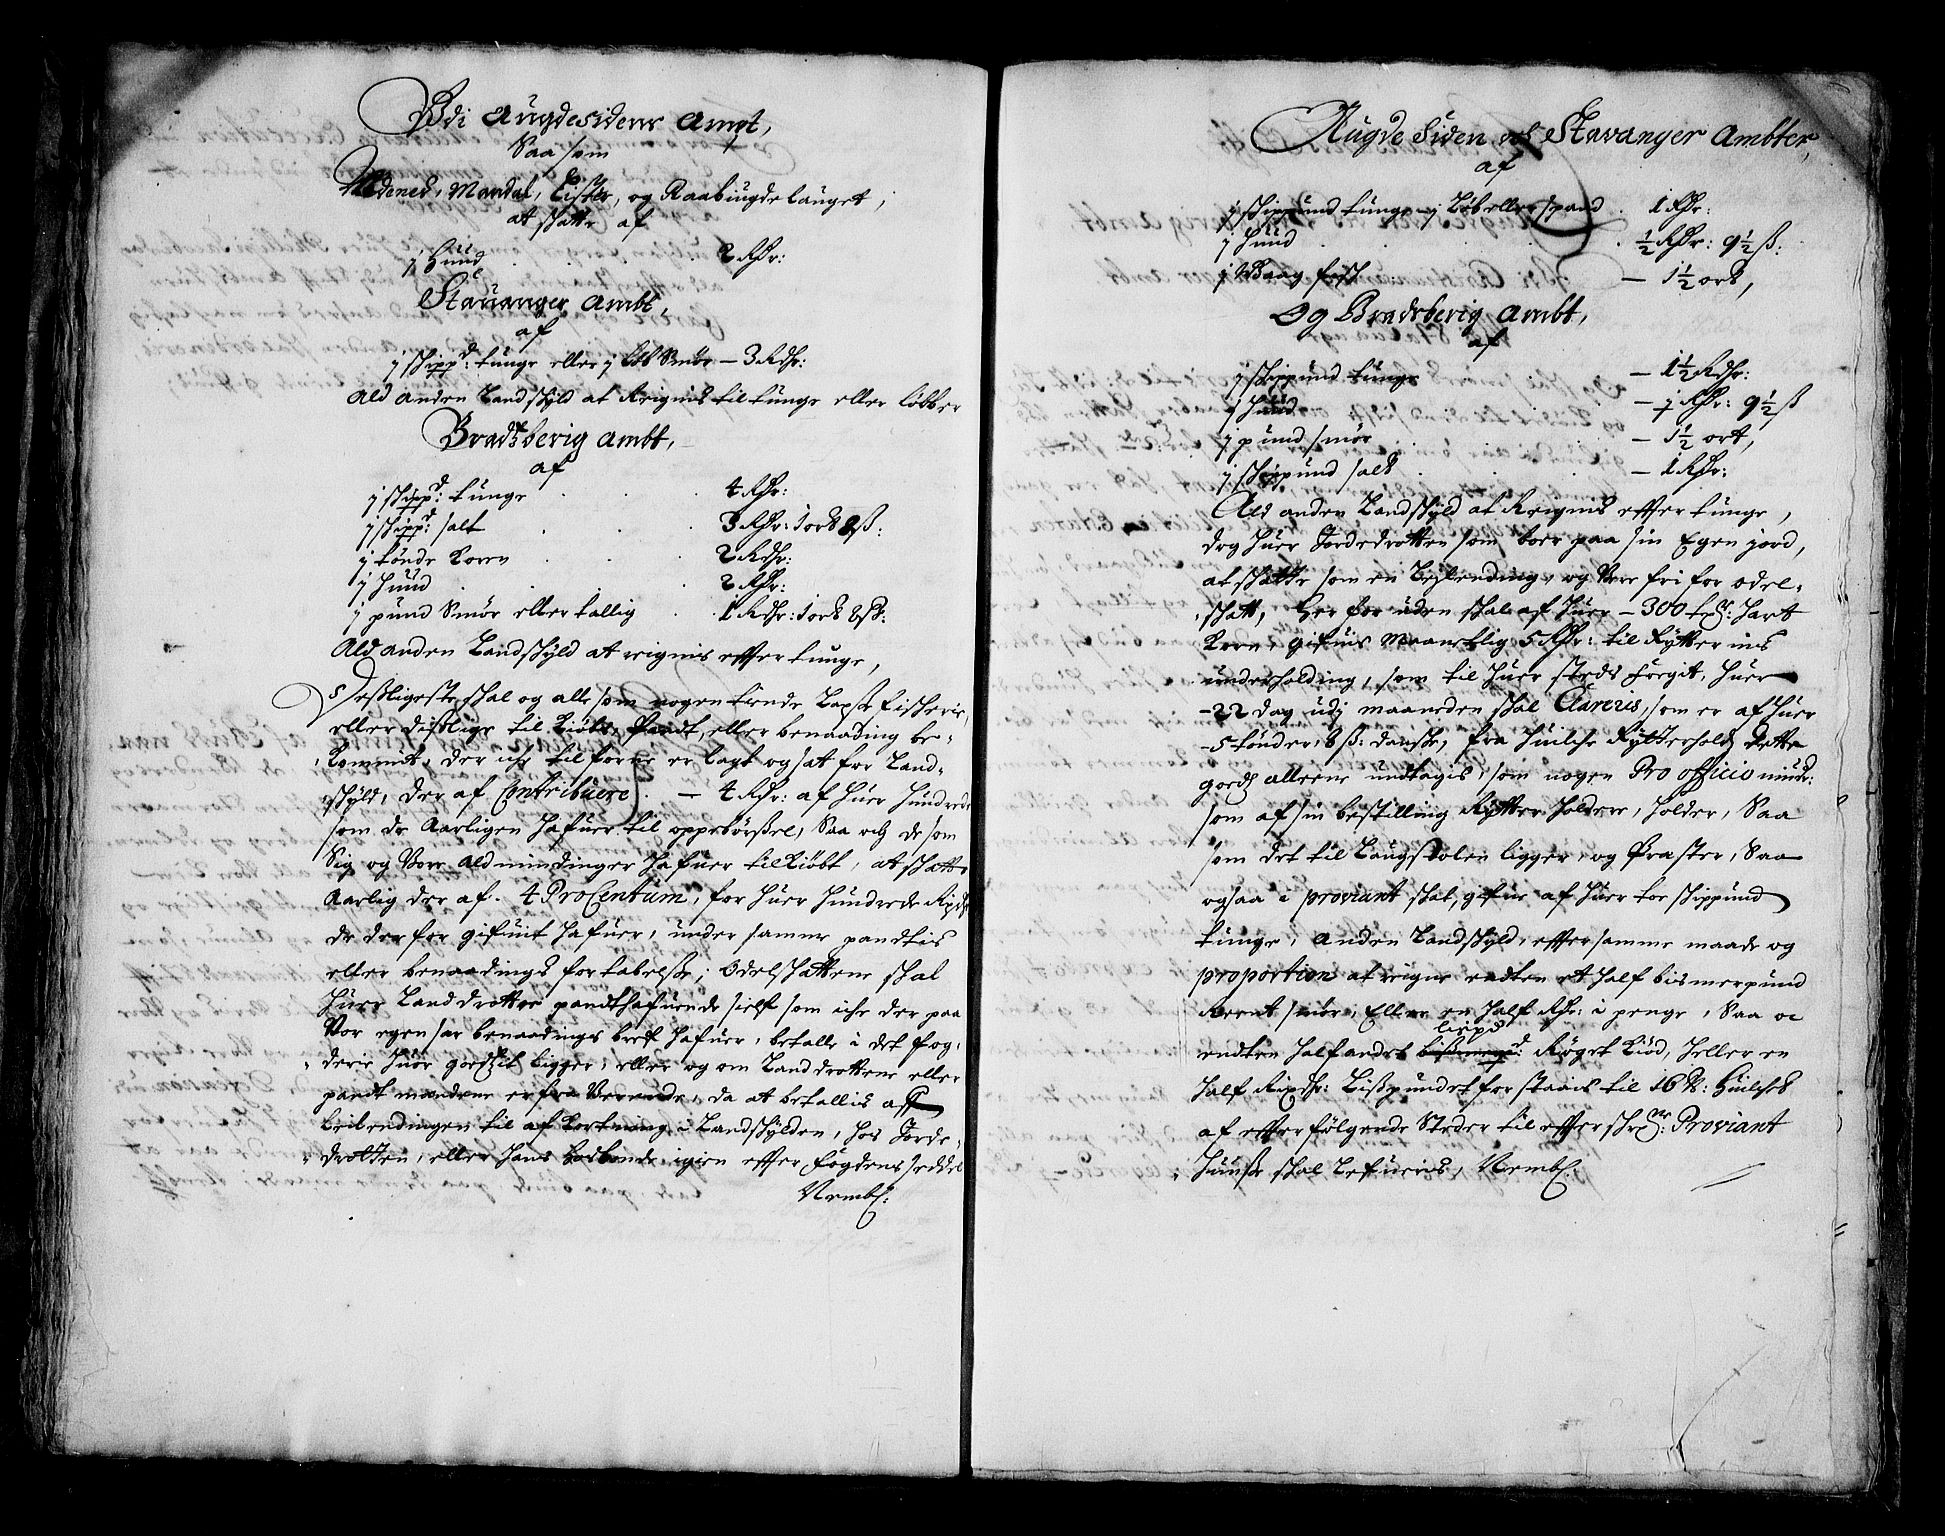 Udi Augdesidens Ambt,
Saa som
Nedenes, Mandal, Lister, og Raabiugdelauget,
at skatte af
j Huud . . . 2 Rdr:
Stauanger Ambt,
af
j skippd: tunge eller j Lób Smór – 3 Rdr:
Ald Anden Landskyld at Reignis til tunge eller lóbber
Bradtzberig Ambt,
af
j skippd: tunge . . . 4 Rdr:
j skippd: salt . . . 3 Rdr: 1 ort 8 ß:
j tónde Korn . . 2 Rdr:
j Huud . . . 2 Rdr:
j pund Smór eller tallig . . 1 Rdr: 1 ort 8 ß:
Ald anden Landskyld at reignis effter tunge,
Desligeste skal og alle som nogen tiende Laxse fischerie,
eller disslige til Kióbs, Pandt, eller benaading be-
kommit, der ich til forne er lagt og sat for Land-
skyld, der af Contribuere – 4 Rdr: af huer hundrede
som de Aarligen hafuer til oppebórssel, Saa och de som
Sig og Vore Aldmindinger hafuer tilkióbt, at skatte
Aarlig der af 4 ProCentum, for huer hundrede Rixdr
de derfor gifuit hafuer, under samme pandtis
eller benaadings fortabelsse; Odelskattene skal
huer Landdrotte pandthafuende sielf som iche der paa
Vor egen sær benaadings bref hafuer, betalle i det fog-
derie huor godtzit ligger, eller og om Landdrottene eller
pandtmændene er fra Verende, da at betallis aff
Leilendingen til afkortning i Landskylden, hos Jorde-
drotten, eller hans hosbonde igien effter fogdens seddel
Nembl:
Augde Siden och Stavanger Ambter,
af
j skippund tunge j Lób eller spand . 1 Rdr:
j Huud . . . ½ Rdr: 9½ ß:
j Waag fisk . . – 1½ ort,
Og Bradsberig Ambt,
af
j skippund tunge – 1½ Rdr:
j Huud . . – j Rdr: 9½ ß
j pund smór . . – 1½ ort,
j skippund salt . . – 1 Rdr:
Ald anden Landskyld at Reignis effter tunge,
dog huer Jordedrotten som boer paa sin Egen jord,
at skatte som en Leylending, og Vere fri for odel-
skatt, Her for uden skal af huer – 300 tdr: hart
Korn, gifuis Maanetlig 5 Rdr: til Rytternis
underholding, som til huer steds fóygit, huer
– 22 dag udj maaneden skal Clareris, som er af huer
– 5 tónder, 8 ß: danske, fra huilche Rytterhold dette
godz alleene undtagis, som nogen Pro officio niude:
som af sin bestilling Rytter holder, holder, Saa
som det til Laugstolen ligger, og Præster, Saa
ogsaa i proviant skat, gifue af huer toe skippund
tunge, Anden Landskyld, effter samme maade og
proportion at reigne endten et half bismerpund
kernt smór, Eller en half Rdr: i penge, Saa oc
endten halfandet lispd Róget Kiód, heller en
half Rixdr: Lispundet forstaais til 16 ℔: huilchet
af effterfólgende Steder til effterschrne: Proviant
huusse skal Lefueris, Nembl.